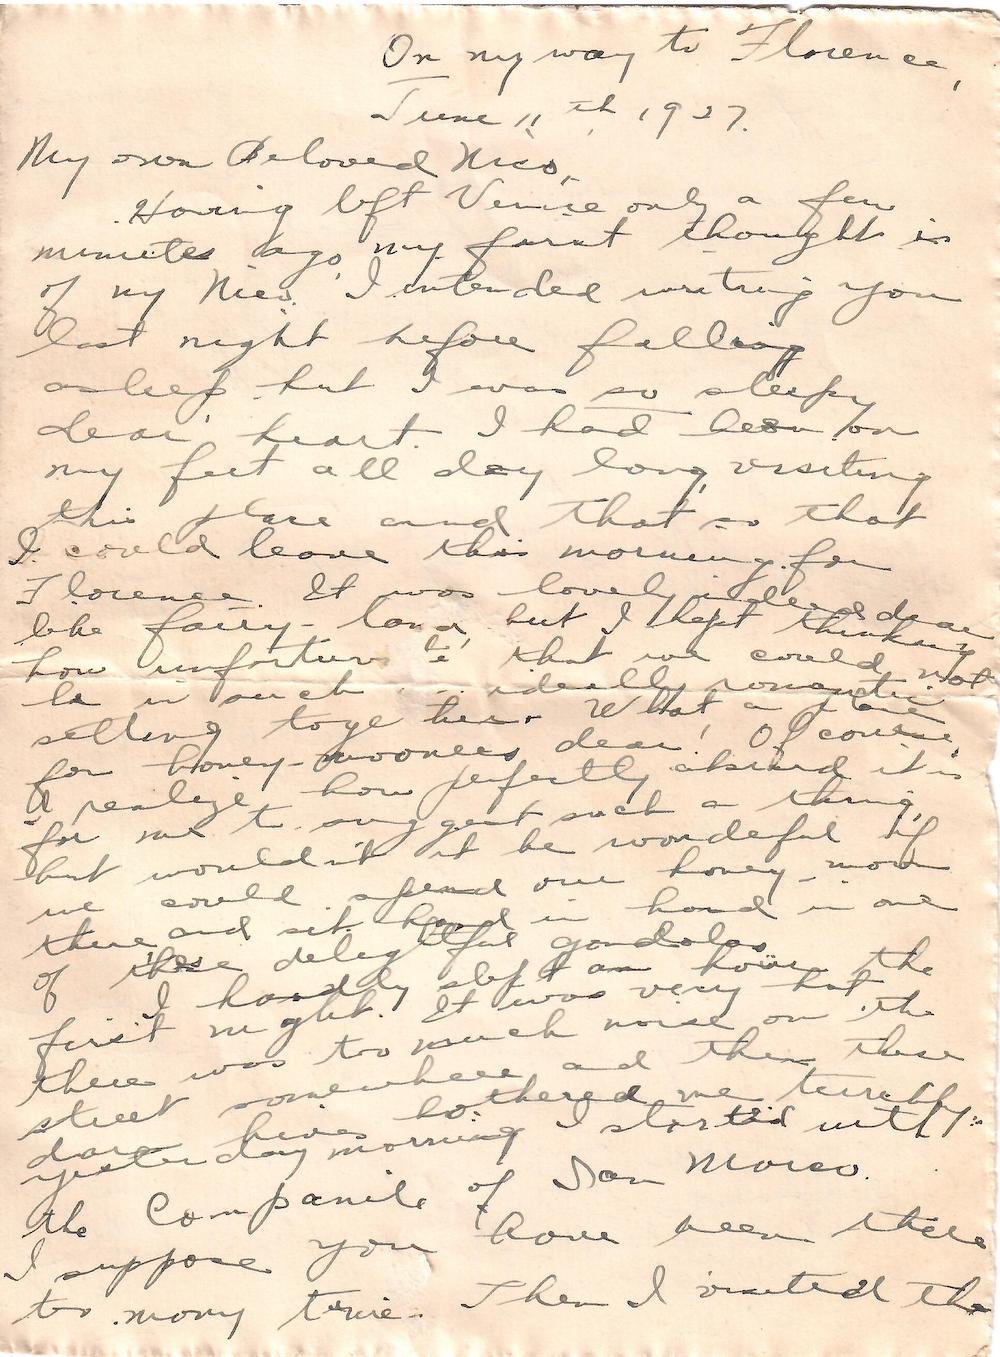 On my way to Florence,
June 11th, 1927.
My own Beloved Nico,
Having left Venice only a few
minutes ago, my first thought is
of my Nico. I intended writing you
last night before falling
asleep but I was so sleepy
dear heart. I had been on
my feet all day long, visiting
this place and that so that
I could leave this morning for
Florence. It was lovely indeed dear
like fairy-land, but I kept thinking
how unfortunate that we could not
be in such ideally romantic
setting together. What a place
for honey-mooners dear! Of course,
I realize how perfectly absurd it is
for me to suggest such a thing,
but wouldn't it be wonderful if
we could spend our honey-moon
there and sit hand in hand in one
of these delightful gondolas.
I hardly slept an hour the
first night. It was very hot,
there was too much noise on the
street somewhere and then these
bothered me terribly.
yesterday morning I started with
the Companile of San Marco.
I suppose you have been there
too many time. Then I visited the